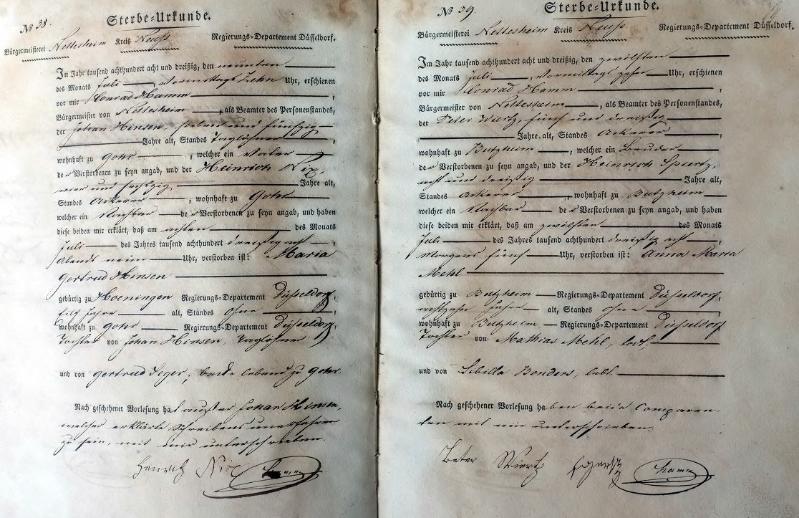 No 38.
Sterbe-Urkunde.
Bürgermeisterei Nettesheim Kreis Neuss Regierungs-Departement Düsseldorf.
Im Jahr tausend achthundert acht und dreißig, den neunten
des Monats Juli, Vormittags zehn Uhr, erschienen
vor mir Conrad Hamm
Bürgermeister von Nettesheim, als Beamter des Personenstandes,
der Johan Hinsen, und fünfzig
Jahre alt, Standes Taglöhner
wohnhaft zu Gohr, welcher ein Vater
der Verstorbenen zu seyn angab, und der Heinrich Nix,
und Jahre alt,
Standes Ackerer, wohnhaft zu Gohr
welcher ein Nachbar der Verstorbenen zu seyn angab, und haben
diese beiden mir erklärt, daß am achten des Monats
Juli des Jahres tausend achthundert dreißig acht,
Abends neun Uhr, verstorben ist: Maria
Gertrud Hinsen
gebürtig zu Hoeningen Regierungs-Departement Düsseldorf,
Jahre alt, Standes ohne
wohnhaft zu Gohr Regierungs-Departement Düsseldorf
Tochter von Johan Hinsen, Taglöhner
und von Gertrud beide lebend zu Gohr.
Nach geschehener Vorlesung hat Johan Hinsen,
welcher erklärte Schreibens unerfahren
zu sein, mit mir unterschrieben
Henrich Nix Hamm
No 39
Sterbe-Urkunde.
Bürgermeisterei Nettesheim Kreis Neuss Regierungs-Departement Düsseldorf.
Im Jahr tausend achthundert acht und dreißig, den zwölften
des Monats Juli, Vormittags zehn Uhr, erschienen
vor mir Conrad Hamm
Bürgermeister von Nettesheim, als Beamter des Personenstandes,
der Peter Wirtz fünf und dreißig
Jahre alt, Standes Ackerer
wohnhaft zu Butzheim, welcher ein
der Verstorbenen zu seyn angab, und der Heinrich
acht und dreißig Jahre alt,
Standes Ackerer, wohnhaft zu Butzheim
welcher ein Nachbar der Verstorbenen zu seyn angab, und haben
diese beiden mir erklärt, daß am zwölften des Monats
Juli des Jahres tausend achthundert dreißig acht,
Morgens fünf Uhr, verstorben ist: Anna Maria
Mehl
gebürtig zu Butzheim Regierungs-Departement Düsseldorf,
Jahre alt, Standes ohne
wohnhaft zu Butzheim Regierungs-Departement Düsseldorf
Tochter von Mathias Mehl,
und von Sibella Bonders,
Nach geschehener Vorlesung haben beide Comparen-
ten mit mir unterschrieben.
Peter Wirtz Hamm